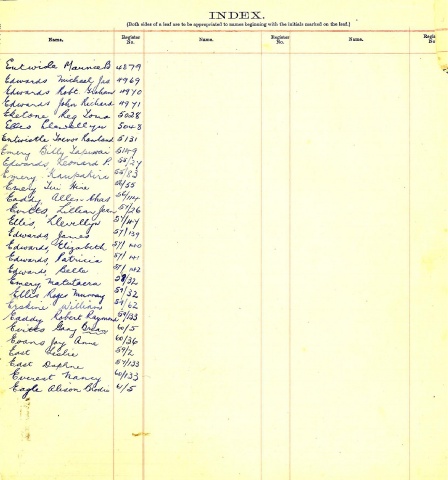 INDEX.
(Both sides of a leaf are to be appropriated to names beginning with the initials marked on the leaf.)
Name. Register No. Name. Register No. Name. Register No.
Entwisle Maurice B 4879
Edwards Michael Jas 4969
Edwards Robt Graham 4970
Edwards John Richard 4971
Eketone Reg Tona 5028
Ellis Llewellyn 5048
Entwistle Trevor Rowland 5131
Emery Billy 5149
Edwards Leonard P. 55/27
Emery 55/83
Emery Tui Hine 56/55
Eaddy Allen Chas 56/114
Evitts, Lillian Joan 57/26
Ellis, Llewellyn 57/
Edwards, James 57/139
Edwards, Elizabeth 57/140
Edwards, Patricia 57/141
Edwards, Bella 57/142
Emery 58/32
Ellis Roger Murray 59/32
Erskine William 59/62
Eaddy Robert Raymond 59/133
Evitts Gary Brian 60/5
Evans Jay Anne 60/36
East Leslie 59/2
East Daphne 57/133
Everest Nancy 60/133
Eagle Alison Brodie 61/5